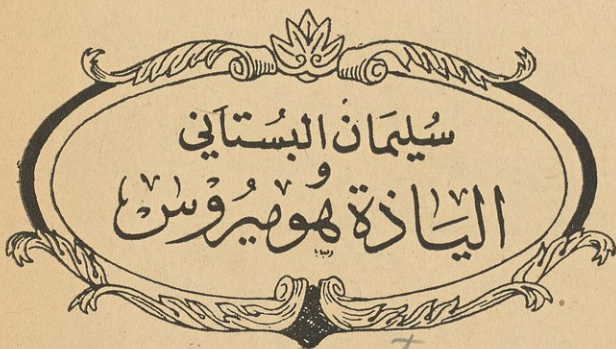 سُليمَان البُستَاني
و
اليَاذة هوميرُوس